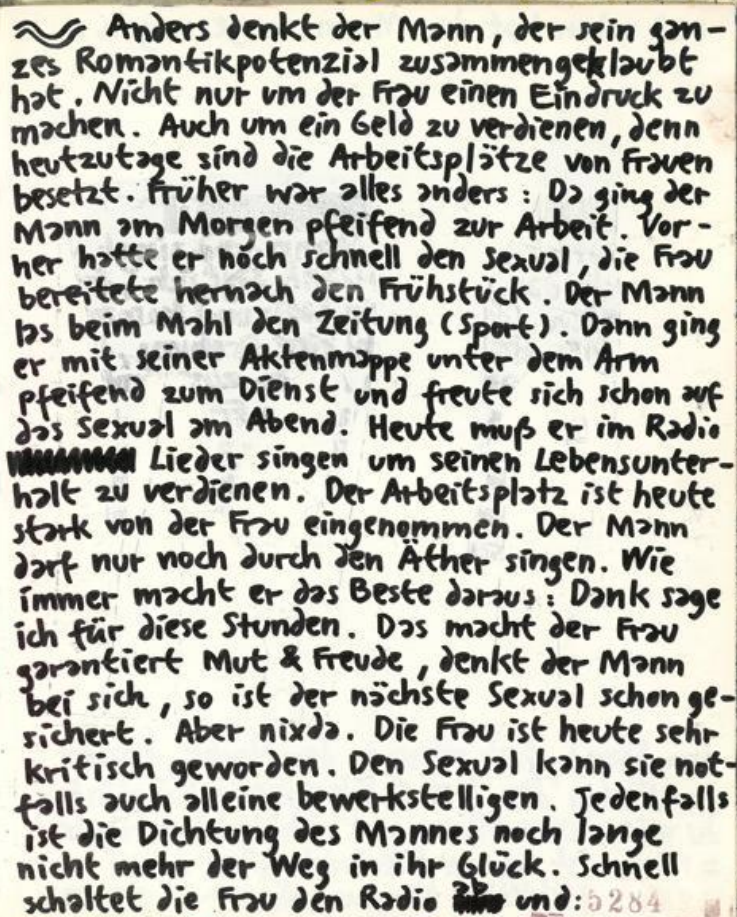 Anders denkt der Mann, der sein gan-
zes Romantikpotenzial zusammengeklaubt
hat. Nicht nur um der Frau einen Eindruck zu
machen. Auch um ein Geld zu verdienen, denn
heutzutage sind die Arbeitsplätze von Frauen
besetzt. Früher war alles anders: Da ging der
Mann am Morgen pfeifend zur Arbeit. Vor-
her hatte er noch schnell den Sexual, die Frau
bereitete hernach den Frühstück. Der Mann
las beim Mahl den Zeitung (Sport). Dann ging
er mit seiner Aktenmappe unter dem Arm
pfeifend zum Dienst und freute sich schon auf
das Sexual am Abend. Heute muß er im Radio
Lieder singen um seinen Lebensunter-
halt zu verdienen. Der Arbeitsplatz ist heute
stark von der Frau eingenommen. Der Mann
darf nur noch durch den Äther singen. Wie
immer macht er das Beste daraus: Dank sage
ich für diese Stunden. Das macht der Frau
garantiert Mut & Freude, denkt der Mann
bei sich, so ist der nächste Sexual schon ge-
sichert. Aber nixda. Die Frau ist heute sehr
kritisch geworden. Den Sexual kann sie not-
falls auch alleine bewerkstelligen. Jedenfalls
ist die Dichtung des Mannes noch lange
nicht mehr der Weg in ihr Glück. Schnell
schaltet die Frau den Radio ab und: 5284